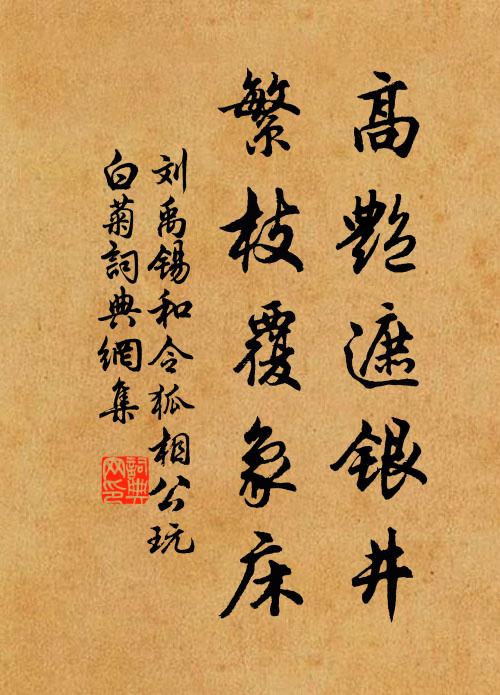 高艷遮銀井
繁枝覆象床
刘禹锡和令狐相公玩
白菊詞典網集
詞典